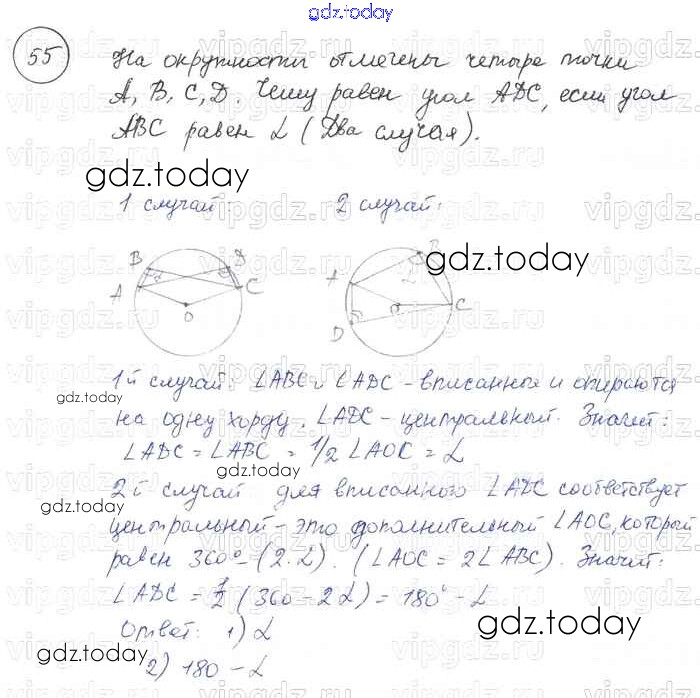 gdz.today
55 На окружности отмечены четыре точки
A, B, C, D. Чему равен угол ADC, если угол
ABC равен α (Два случая).
gdz.today
1 случай: 2 случай:
B D A C O
A B D C O
gdz.today
1й случай: ∠ABC и ∠ADC - вписанные и опираются
gdz.today
на одну хорду. ∠ADC - центральный. Значит:
∠ADC = ∠ABC = 1/2 ∠AOC = α
gdz.today
2й случай для вписанного ∠ADC соответствует
gdz.today
центральный - это дополнительный ∠AOC, который
равен 360° - (2·α). (∠AOC = 2∠ABC). Значит:
∠ADC = 1/2 (360 - 2α) = 180° - α
Ответ: 1) α
gdz.today
gdz.today
2) 180 - α